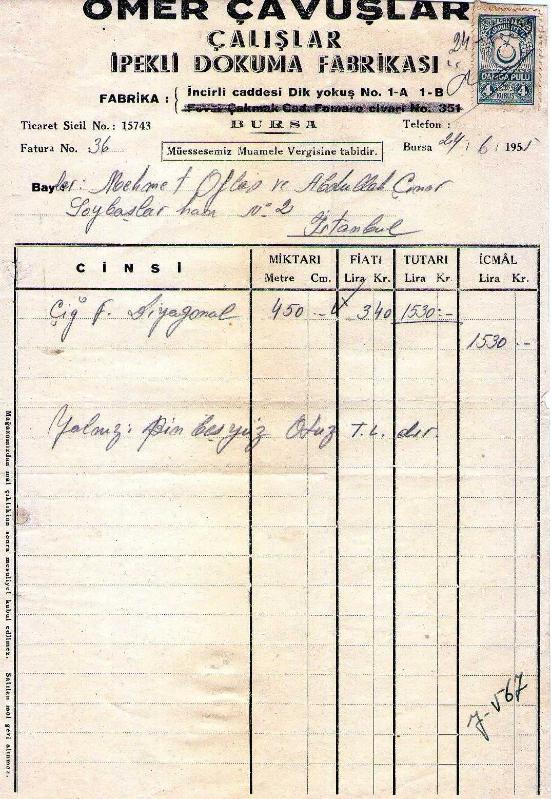 ÖMER ÇAVUŞLAR
ÇALIŞLAR
İPEKLİ DOKUMA FABRİKASI
FABRİKA : İncirli caddesi Dik yokuş No. 1-A 1-B
Fevzi Çakmak Cad. Fomara civarı No. 351
BURSA
Ticaret Sicil No.: 15743
Telefon :
Fatura No. 36
Müessesemiz Muamele Vergisine tabidir.
Bursa 24/6/1955
DAMGA PULU
4 4
Bay ler: Mehmet Oflas ve Abdullah Çınar
Soybaşlar han No 2
İstanbul
CİNSİ
MİKTARI FİATI TUTARI İCMÂL
Metre Cm. Lira Kr. Lira Kr. Lira Kr.
Çiğ F. Diyagonal 450 -- x 340 1530:-
1530 --
Yalnız: Bin beşyüz Otuz T.L. dır.
Mağazamızdan mal çıktıktan sonra mesuliyet kabul edilmez. Satılan mal geri alınmaz.